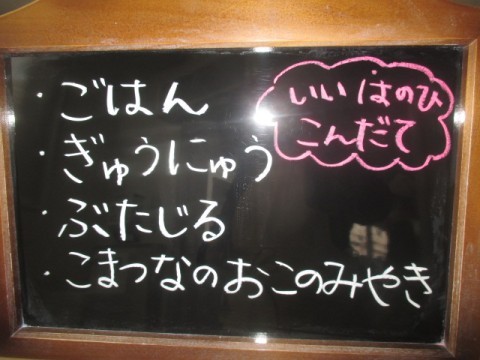 いいはのひ
こんだて
・ごはん
・ぎゅうにゅう
・ぶたじる
・こまつなのおこのみやき